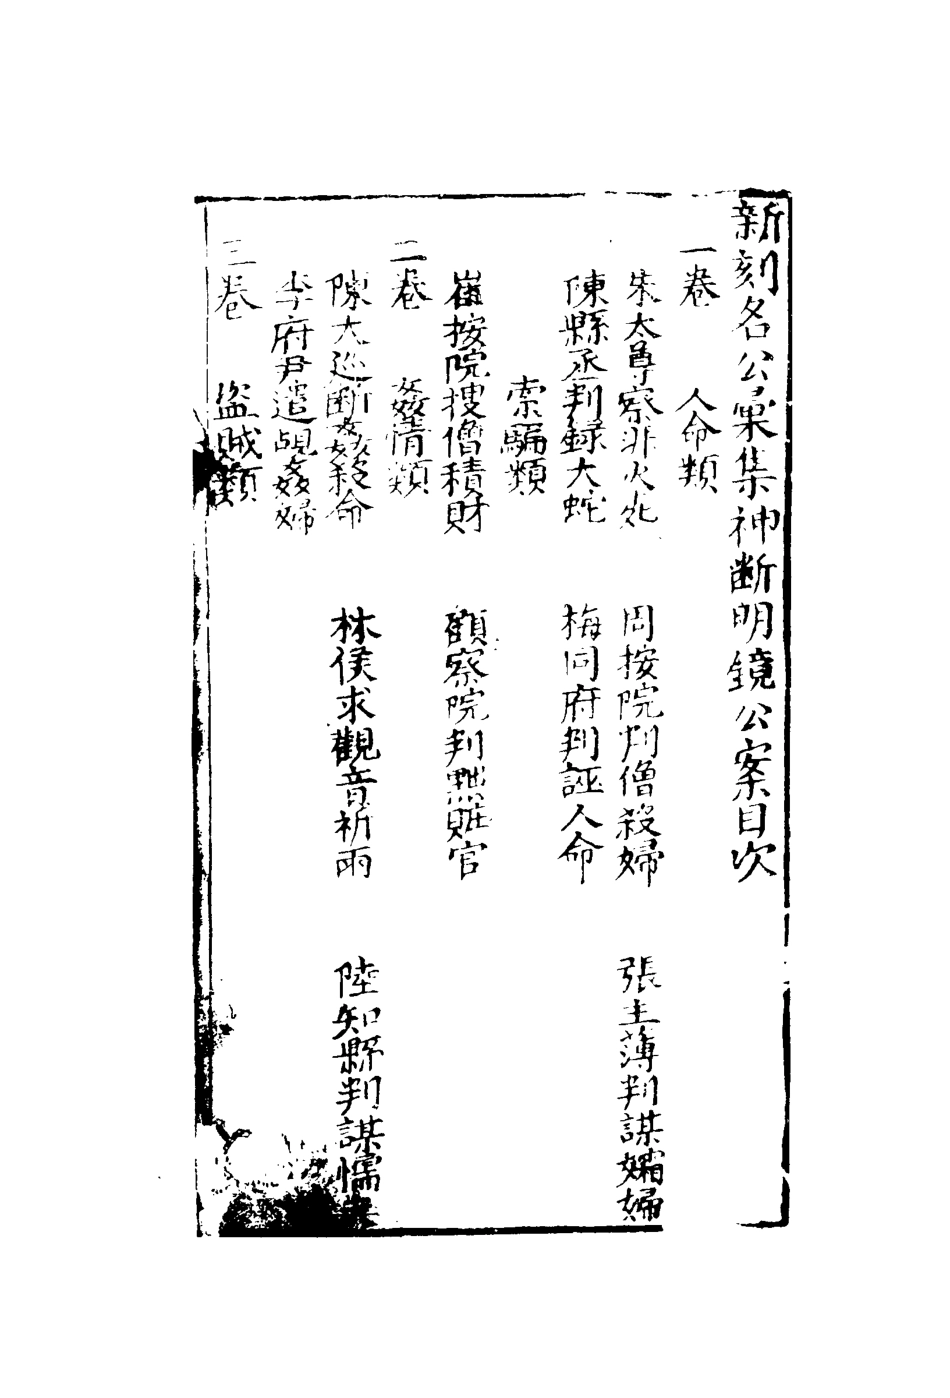 新刻名公彙集神断明鏡公案目次
一卷 人命類
朱太尊察非火死 周按院判僧殺婦 張主薄判謀孀婦
陳縣丞判錄大蛇 梅同府判誣人命
索騙類
崔按院搜僧積財 顧察院判黜賍官
二卷 姦情類
陳大巡断姦殺命 林侯求觀音祈雨 陸知縣判謀懦
李府尹遣覘姦婦
三卷 盜賊類